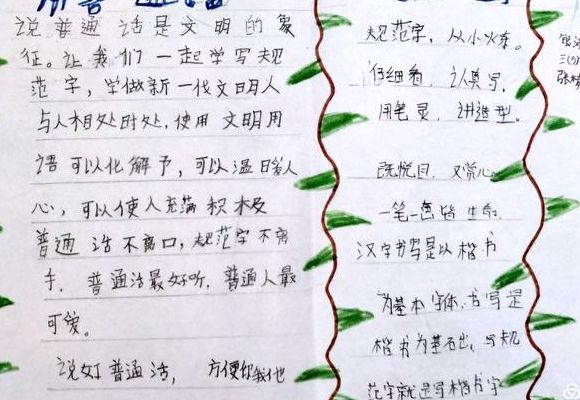 说普通话是文明的象
征。让我们一起学写规
范字，学做新一代文明人
与人相处时处，使用文明用
语可以化解予，可以温暖人
心，可以使人充满积极
普通话不离口，规范字不离
手．普通话最好听，普通人最
可爱。
说好普通话，方便你我他
规范字，从小火练。
仔细看，认真写，
用笔灵，讲造型。
既悦目，又赏心
一笔一画皆生命．
汉字书写是以楷书
为基本字体，书写是
楷书为基石出，写规
范字就是写楷书字
三(1)